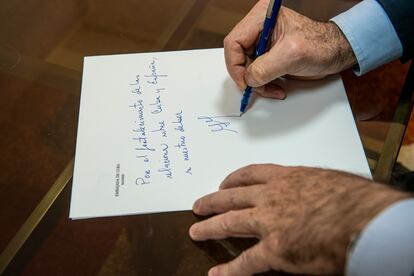 Por el fortalecimiento de las
relaciones entre Cuba y España,
es nuestro deber
EMBAJADA DE CUBA
MADRID